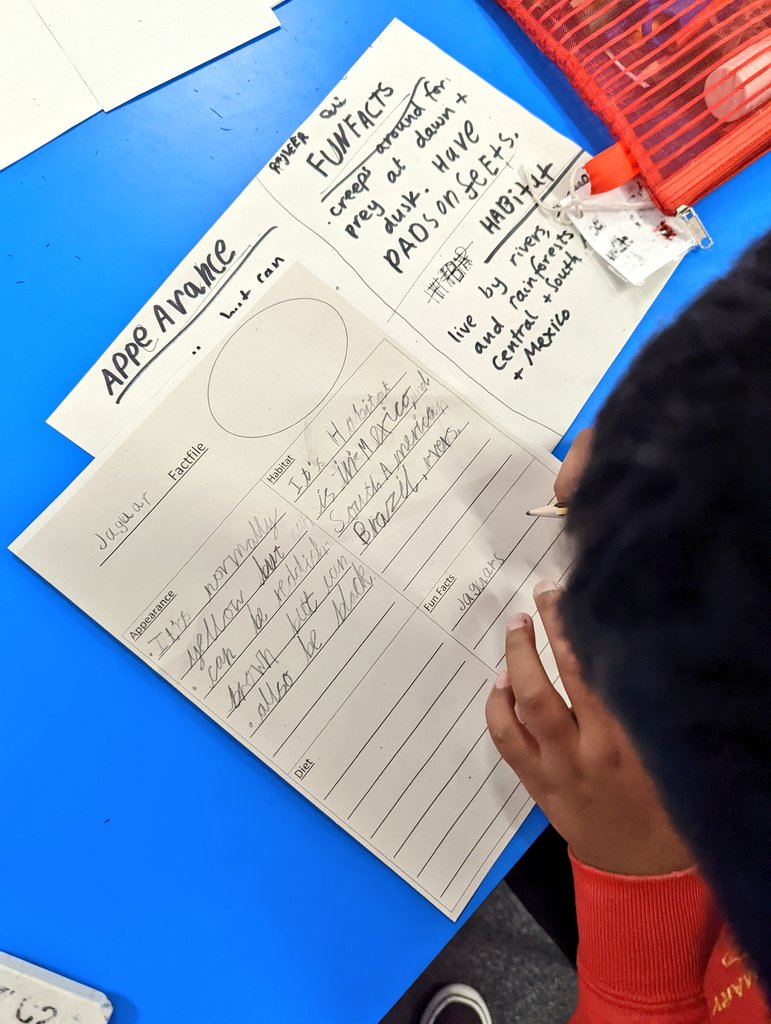 RAJVEER
FUN FACTS
creeps around for
prey at dawn +
dusk. Have
PADS on feets.
HABitat
live by rivers,
and rainforests
central + south
+ Mexico
AppeArance
ran
Jaguar Factfile
Appearance
. It's normally
yellow but
. can be reddish
brown but can
. also be black.
Habitat
It's Habitat
is in Mexico, and
South American
Brazil, rivers.
Fun Facts
Jaguars
Diet
MARY